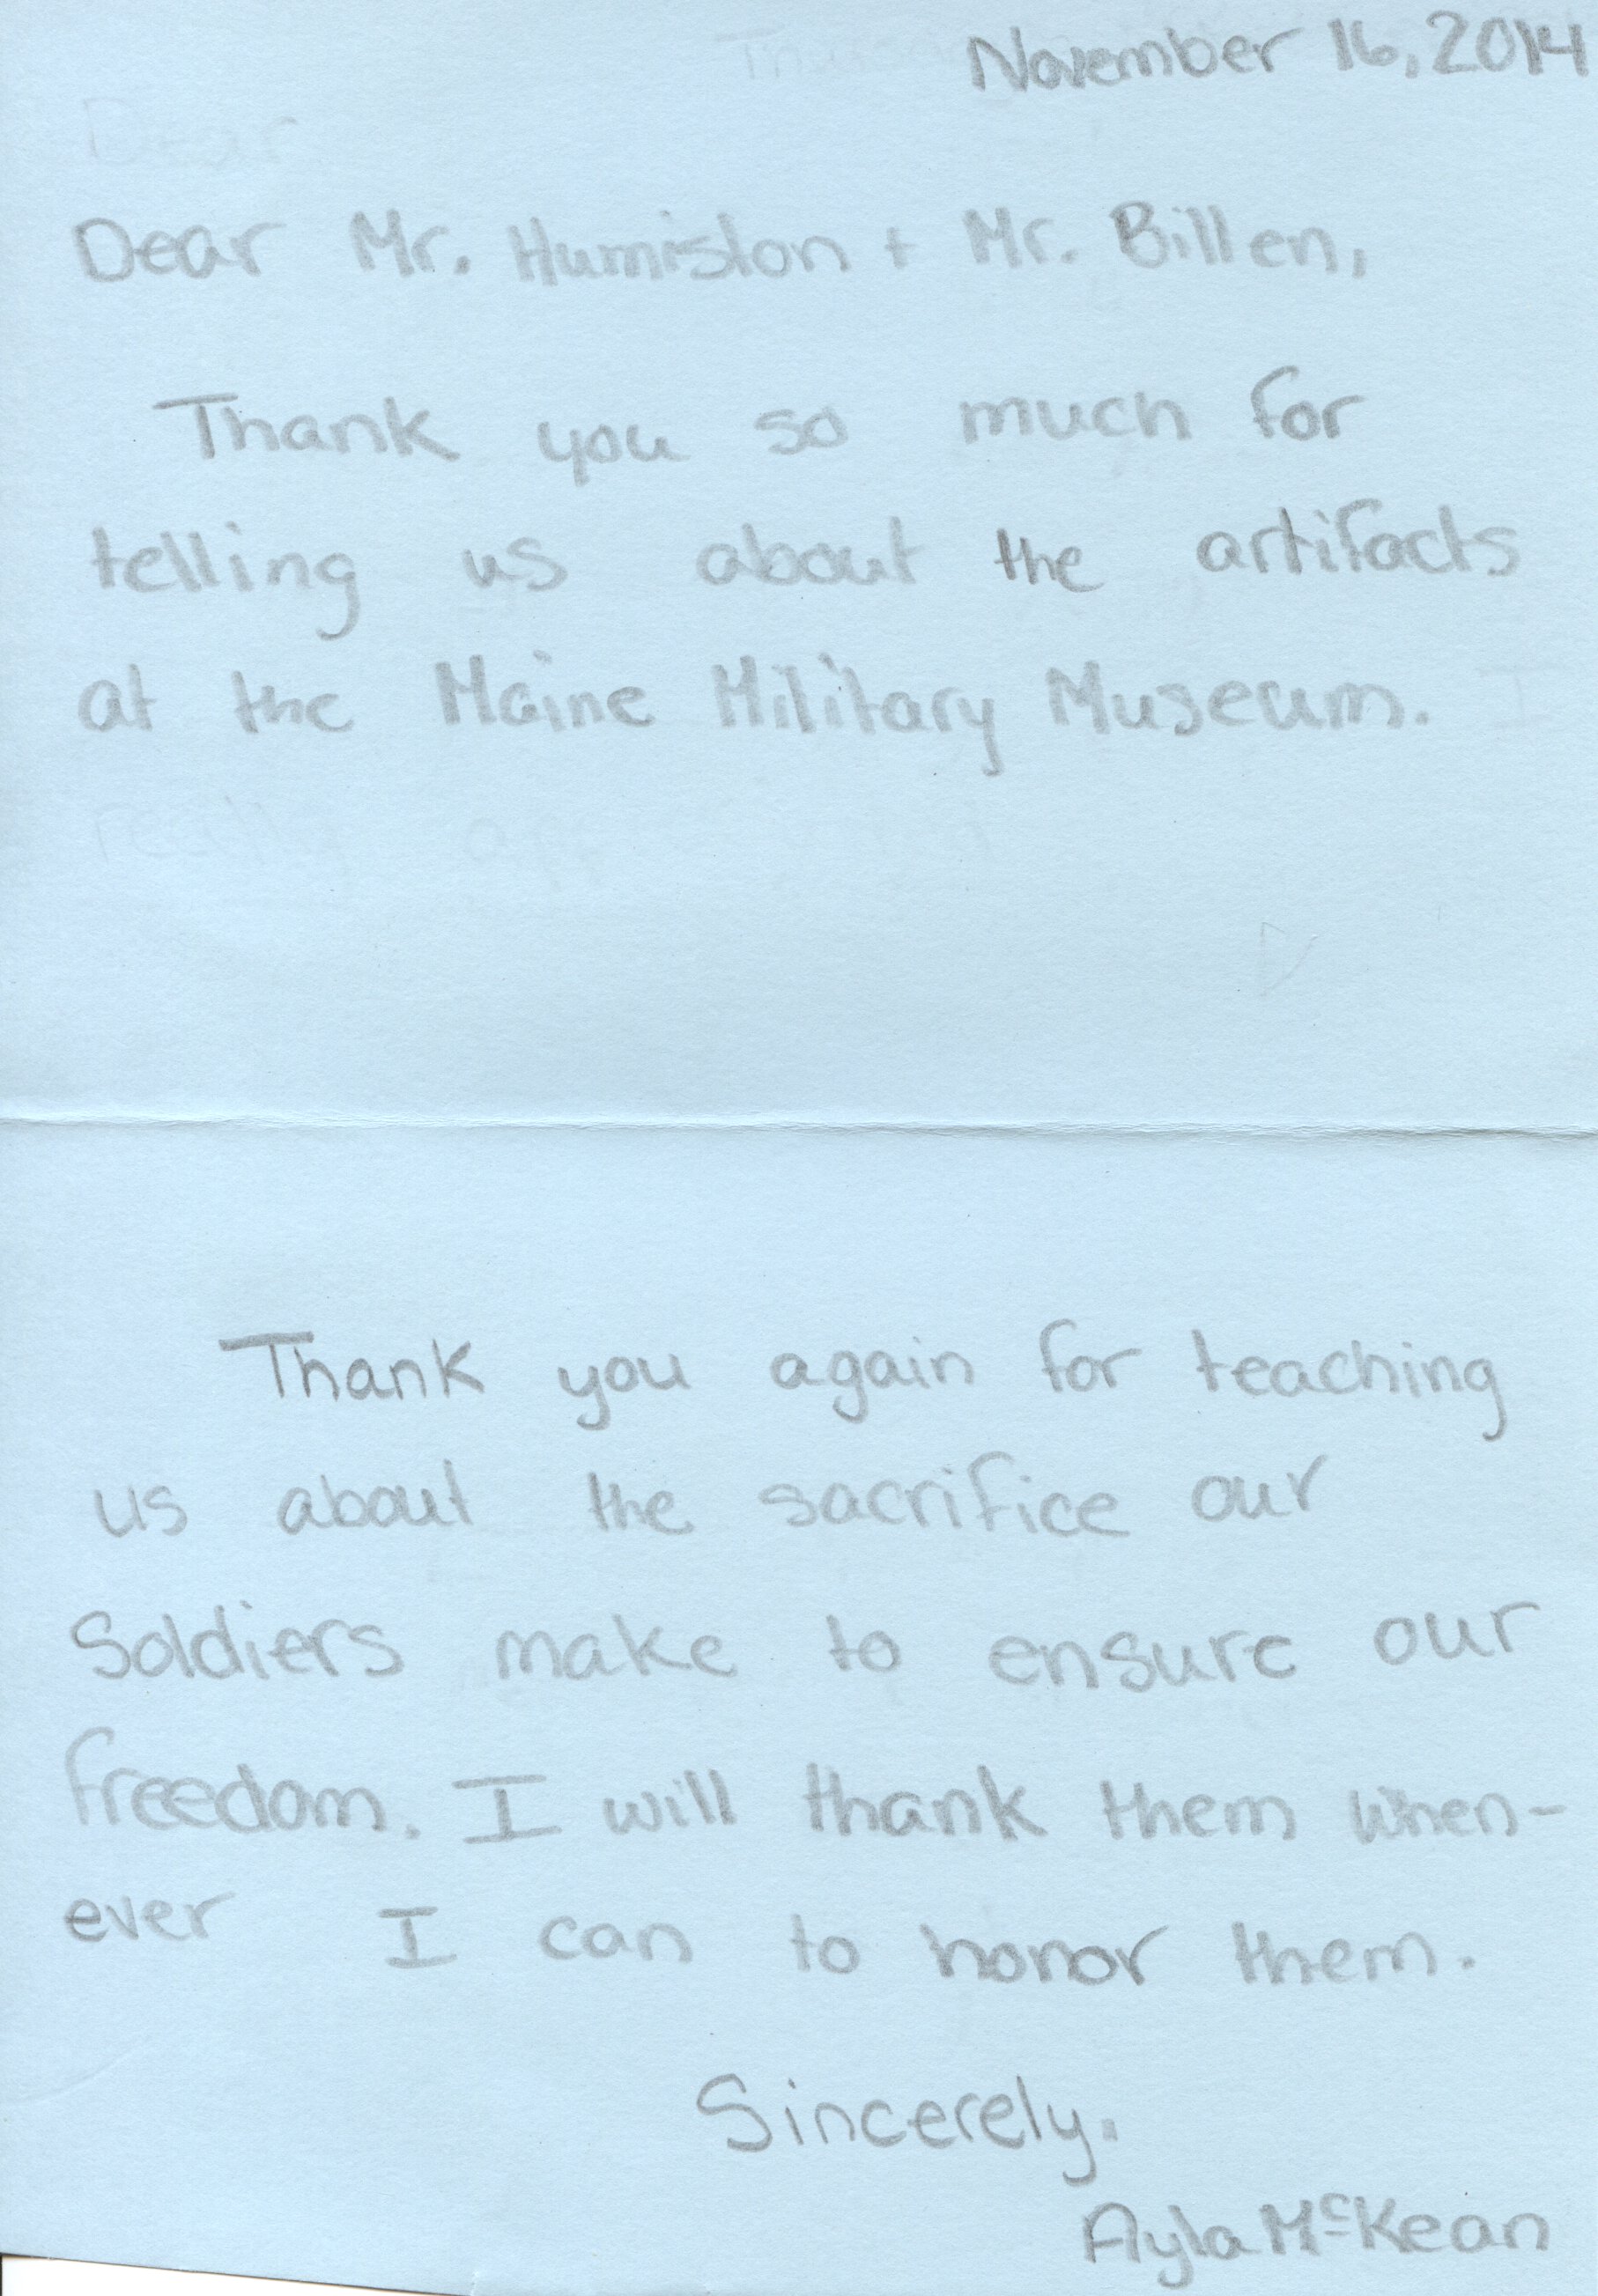 November 16, 2014
Dear
Dear Mr. Humiston + Mr. Billen,
Thank you so much for
telling us about the artifacts
at the Maine Military Museum. I
really
Thank you again for teaching
us about the sacrifice our
Soldiers make to ensure our
freedom. I will thank them when-
ever I can to honor them.
Sincerely,
Ayla McKean